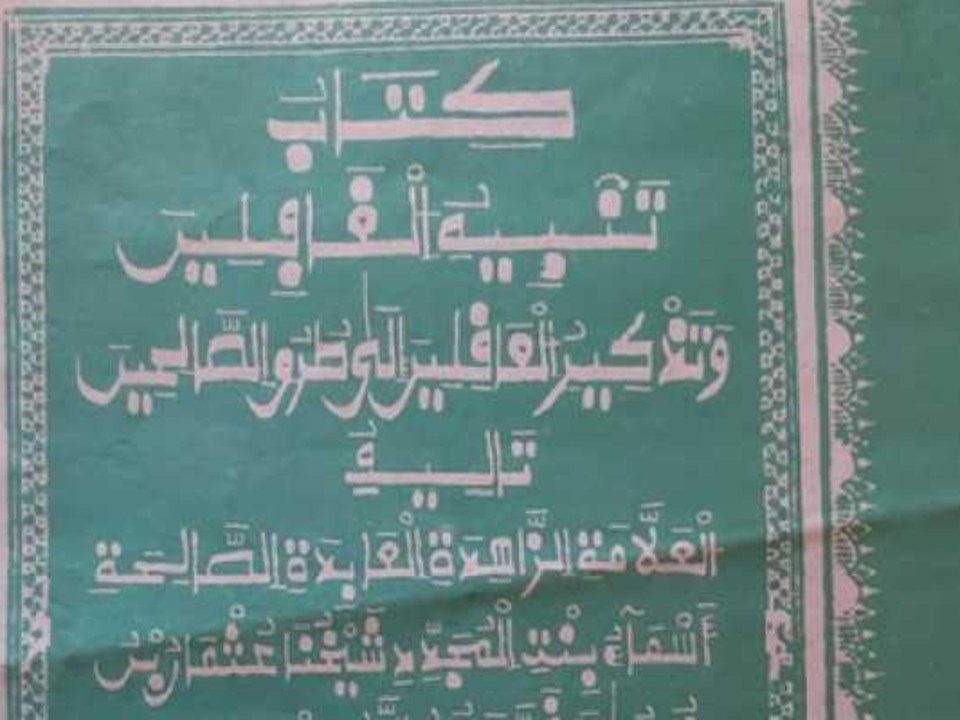 كِتَابُ
تَنْبِيهُ الْغَافِلِينَ
وَتَذْكِيرُ الْعَاقِلِينَ إِلَى طُرُقِ الصَّالِحِينَ
تَالِيفُ
الْعَلَّامَةِ الزَّاهِدَةِ الْعَابِدَةِ الصَّالِحَةِ
أَسْمَآءُ بِنْتِ الْمُجَدِّدِ شَيْخُنَا عُثْمَانُ بْنُ